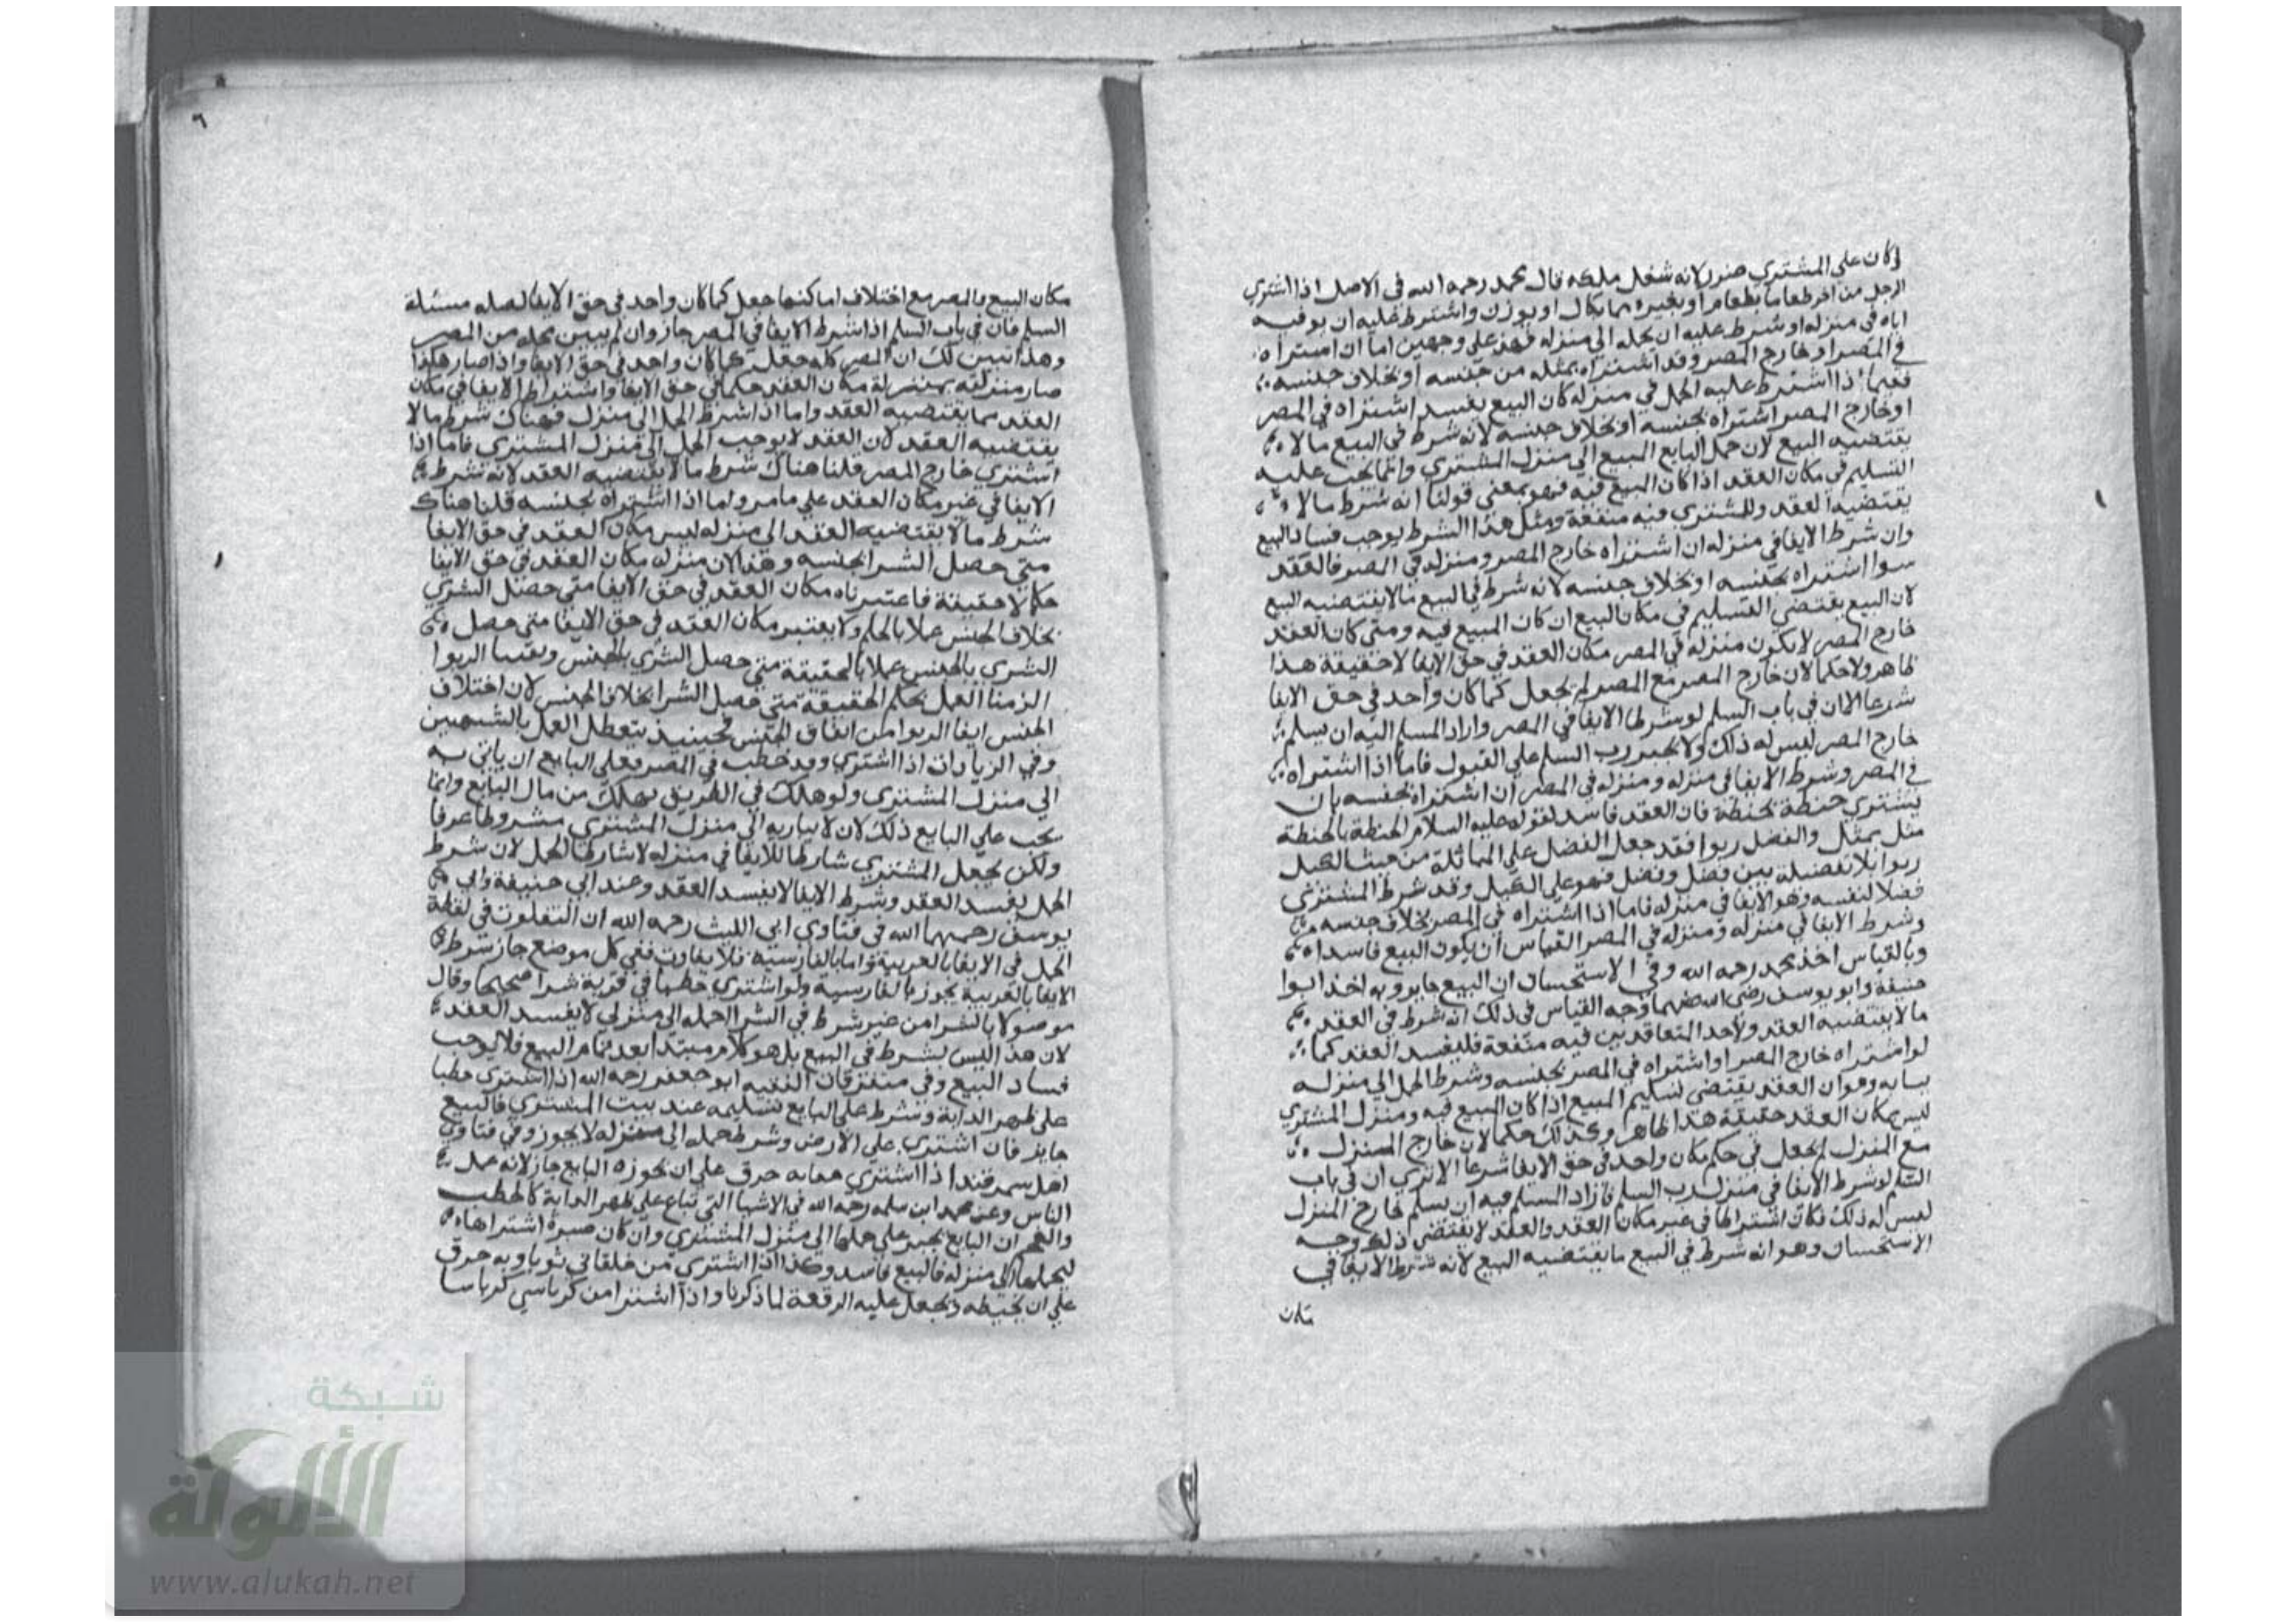 كان على المشتري ضرر لانه شغل ملكه قال محمد رحمه الله في الاصل اذا اشترى
الرجل من اخر طعاما بطعام او بغيره مما يكال او يوزن واشترط عليه ان يوفيه
اياه في منزله او شرط عليه ان يحمله الى منزله فهذ على وجهين اما ان اشتراه
في المصر او خارج المصر وقد اشتراه بمثله من جنسه او بخلاف جنسه
ففيما اذا اشترط عليه الحمل في منزله كان البيع يفسد اشتراه في المصر
او خارج المصر اشتراه بجنسه او بخلاف جنسه لانه شرط في البيع مالا
يقتضيه البيع لان حمل البايع المبيع الى منزل المشتري وانما يجب عليه
التسليم في مكان العقد اذا كان البيع فيه فهو معنى قولنا انه شرط مالا
يقتضيه العقد وللمشتري فيه منفعة ومثل هذا الشرط يوجب فساد البيع
وان شرط الايفا في منزله ان اشتراه خارج المصر ومنزله في المصر فالعقد
سوا اشتراه بجنسه او بخلاف جنسه لانه شرط في البيع مالا يقتضيه البيع
لان البيع يقتضي التسليم في مكان البيع ان كان المبيع فيه ومتى كان العقد
خارج المصر لا يكون منزله في المصر مكان العقد في حق الايفا لا حقيقة هذا
ظاهر ولا حكما لان خارج المصر مع المصر لم يجعل كمكان واحد في حق الايفا
شرعا الا ان في باب السلم لو شرطا الايفا في المصر واراد المسلم اليه ان يسلم
خارج المصر ليس له ذلك ولا يجبر رب السلم على القبول فاما اذا اشتراه
في المصر وشرط الايفا في منزله ومنزله في المصر ان اشتراه بجنسه بان
يشتري حنطة بحنطة فان العقد فاسد لقوله عليه السلام الحنطة بالحنطة
مثل بمثل والفضل ربوا فقد جعل الفضل على المماثلة من حيث الكيل
ربوا بلا تفضيلة بين فضل وفضل فهو على الكيل وقد شرط المشتري
فضلا لنفسه وهو الايفا في منزله فاما اذا اشتراه في المصر بخلاف جنسه
وشرط الايفا في منزله ومنزله في المصر القياس ان يكون البيع فاسدا
وبالقياس اخذ محمد رحمه الله وفي الاستحسان ان البيع جايز وبه اخذ ابوا
حنيفة وابو يوسف رضى الله عنهما وجه القياس في ذلك انه شرط في العقد
مالا يقتضيه العقد ولاحد المتعاقدين فيه منفعة فليفسد العقد كما
لو اشتراه خارج المصر او اشتراه في المصر بجنسه وشرط الحمل الي منزله
بيانه وهو ان العقد يقتضي تسليم المبيع اذا كان المبيع فيه ومنزل المشتري
ليس بمكان العقد حقيقة هذا ظاهر وكذلك حكما لان خارج المنزل
مع المنزل لم يجعل في حكم مكان واحد في حق الايفا شرعا الا تري ان في باب
السلم لو شرط الايفا في منزل رب السلم فاراد المسلم فيه ان يسلم خارج المنزل
ليس له ذلك فكان اشتراطا في غير مكان العقد والعقد لا يقتضي ذلك وجه
الاستحسان وهو انه شرط في البيع ما يقتضيه البيع لانه شرط الايفا في
مكان
٦
مكان البيع فالمصر مع اختلاف اماكنها جعل كمكان واحد في حق الايفا اصله مسئلة
السلم فان في باب السلم اذا شرط الايفا في المصر جاز وان لم يبين محله من المصر
وهذا تبين لك ان المصر كله جعل كمكان واحد في حق الايفا واذا صار هكذا
صار منزله بمنزلة مكان العقد حكما في حق الايفا واشتراط الايفا في مكان
العقد مما يقتضيه العقد واما اذا اشرط الحمل الى منزل فهناك شرط مالا
يقتضيه العقد لان العقد لا يوجب الحمل الى منزل المشتري فاما اذا
اشتري خارج المصر قلنا هناك شرط مالا يقتضيه العقد لانه شرط
الايفا في غير مكان العقد علي ما مر واما اذا اشتراه بجنسه قلنا هناك
شرط مالا يقتضيه العقد الى منزله ليس مكان العقد في حق الايفا
متى حصل الشرا بجنسه وهذا لان منزله مكان العقد في حق الايفا
حكما لا حقيقة فاعتبرناه مكان العقد في حق الايفا متى حصل الشري
بخلاف الجنس عملا بالحكم ولا يعتبر مكان العقد في حق الايفا متى حصل
الشري بالجنس عملا بالحقيقة متى حصل الشري بالجنس الربوا
الزمنا العمل بحكم الحقيقة متى حصل الشرا بخلاف الجنس لان اختلاف
الجنس الربوا من اتفاق الجنس فحينيذ يتعطل العمل بالشبهين
وفي الزيادات اذا اشتري وقد حطب في المصر فعلى البايع ان ياتي به
الي منزل المشتري ولو هلك في الطريق يهلك من مال البايع وانما
يجب علي البايع ذلك لان الى منزل المشتري مشروطا عرفا
ولكن يجعل المشتري شارطا للايفا في منزله لا شارطا للحمل لان شرط
الحمل يفسد العقد وشرط الايفا لا يفسد العقد وعند ابي حنيفة وابي
يوسف رحمهما الله في فتاوي ابي الليث رحمه الله ان التفاوت في لفظة
الحمل في الايفا بالعربية واما بالفارسية فلا يفاوت ففي كل موضع جاز شرط
الايفا بالعربية يجوز بالفارسية ولو اشتري حطبا في قرية شرا صحيحا وقال
موصولا بالشرا من غير شرط في الشرا احمله الي منزلي لا يفسد العقد
لان هذا ليس بشرط في البيع بل هو كلام مبتدا بعد تمام البيع فلا يوجب
فساد البيع وفي متفرقات الفقيه ابو جعفر رحمه الله اذا اشتري حطبا
على ظهر الدابة وشرط على البايع تسليمه عند بيت المشتري فالبيع
جايز فان اشتري على الارض وشرط حمله الى منزله لا يجوز وفي فتاوي
اهل سمرقند اذا اشتري خرق على ان البايع جاز لانه عمل
الناس وعن محمد ابن سلمه رحمه الله في الاشيا التي تباع على ظهر الدابة كالحطب
والفحم ان البايع يجبر على حملها الى منزل المشتري وان كان صبرة اشتراها
ليحملها الى منزله فالبيع فاسد وكذا اذا اشتري من خلقاني ثوبا وبه خرق
علي ان يخيطه ويجعل عليه الرقعة لما ذكرنا واذا اشترا من كرباسي كرباسا
شبكة
الألوكة
www.alukah.net